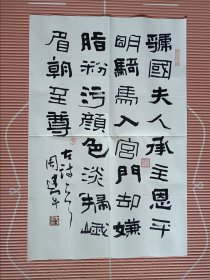 虢國夫人承主恩平
明騎馬入宮門却嫌
脂粉污顏色淡掃蛾
眉朝至尊
古詩
周